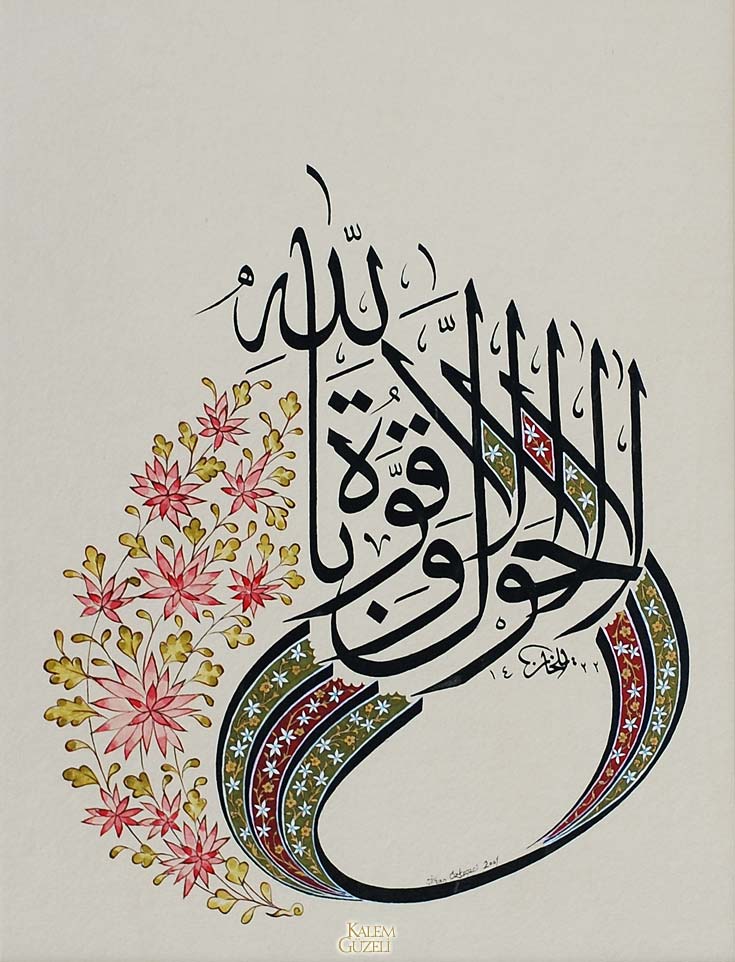 لا حول ولا قوة إلا بالله
١٤٢٢
2001
KALEM
GÜZELİ